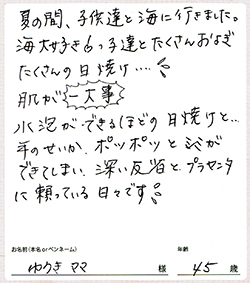 夏の間、子供達と海に行きました。
海大好き6っ子達とたくさんおよぎ
たくさんの日焼け…
肌が 一大事
水泡ができるほどの日焼けと…
年のせいか、ポッポッとシミが
できてしまい、深い反省と、プラセンタ
に頼っている日々です
お名前(本名orペンネーム) 年齢
ゆうき ママ 様 45 歳